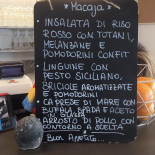 * Macaja *
INSALATA DI RISO
ROSSO CON TOTANI,
MELANZANE E
POMODORINI CONFIT
LINGUINE CON
PESTO SICILIANO,
BRICIOLE AROMATIZZATE
E POMODORINI
CAPRESE DI MARE CON
BUFALA, SPADA E ACETO
ARROSTO DI POLLO CON
CONTORNO A SCELTA
Buon Appetito...